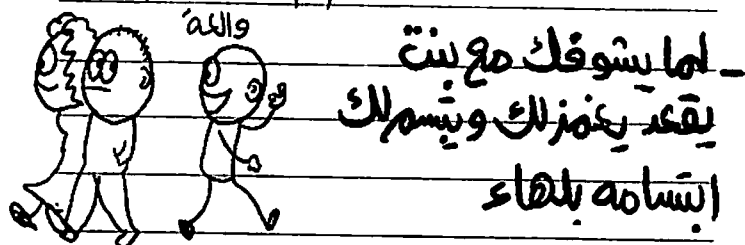 والعة
- لما يشوفك مع بنت
يقعد يغمزلك ويبتسم لك
ابتسامه بلهاء